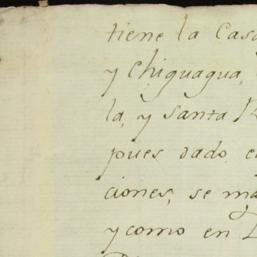 tiene la Casa
y Chiguagua,
la, y santa
pues dado, e
ciones, se ma
y como en